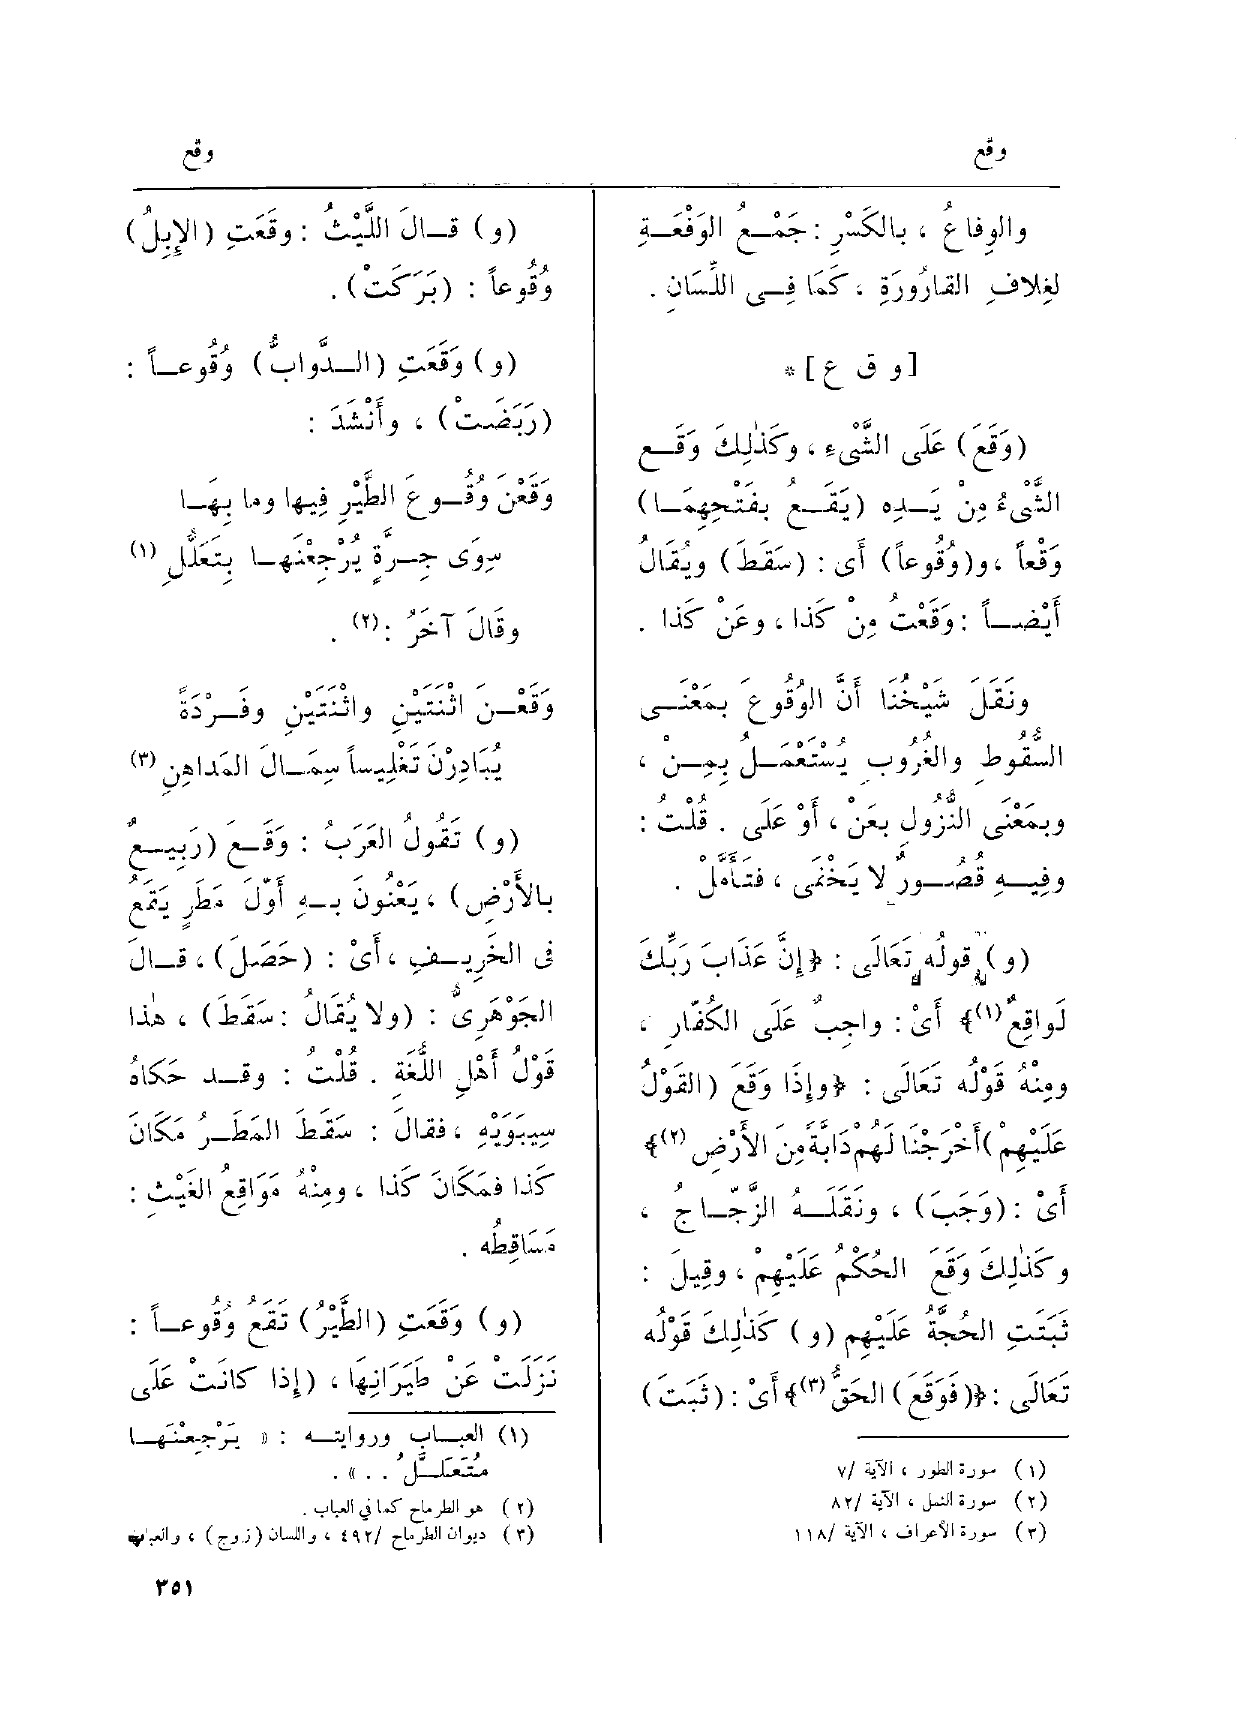 وقع
وقع
والوِفاعُ ، بالكَسْرِ : جَمْـعُ الوَفْعَـةِ
لِغِلافِ القارُورَةِ ، كَمَا فِـى اللِّسَانِ .
[ و ق ع ] *
(وَقَعَ) عَلَى الشَّىءِ ، وكَذٰلِكَ وَقَـع
الشَّىءُ مِنْ يَـدِه (يَقَـع بفَتْحِهِمَـا)
وَقْعاً ، و(وُقُوعاً) أَى : (سَقَطَ) ويُقَالُ
أَيْضـاً : وَقَعْتُ مِنْ كَذا ، وعَنْ كَذا .
ونَقَلَ شَيْخُنا أَنَّ الوُقُوعَ بِمَعْنَـى
السُّقُوطِ والغُرُوبِ يُسْتَعْمَـل بِمِـنْ ،
وبِمَعْنَى النُّزُولِ بعَنْ ، أَوْ عَلَى . قُلْتُ :
وفِيـهِ قُصُـورٌ لا يَخْفَى ، فتَأَمَّلْ .
(و) قولُه تَعَالَى : ﴿إِنَّ عَذَابَ رَبِّكَ
لَواقِعٌ(١)﴾ أَىْ : واجِبٌ عَلَى الكُفّارِ ،
ومِنْهُ قَوْلُه تَعَالَى : ﴿وإِذَا وَقَعَ (القَوْلُ
عَلَيْهِمْ) أَخْرَجْنَا لَهُم دَابَّةً مِنَ الأَرْضِ(٢)﴾
أَىْ : (وَجَبَ) ، ونَقَلَـهُ الزَّجّـاجُ ،
وكَذٰلِكَ وَقَعَ الحُكْمُ عَلَيْهِمْ ، وقِيلَ :
ثَبَتَتِ الحُجَّةُ عَلَيْهِم (و) كَذٰلِكَ قَوْلُه
تَعَالَى : ﴿(فَوَقَعَ) الحَقُّ(٣)﴾ أَىْ : (ثَبَتَ)
(١) سورة الطور ، الآية /٧
(٢) سورة النمل ، الآية /٨٢
(٣) سورة الأعراف ، الآية /١١٨
(و) قـالَ اللَّيْثُ : وقَعَتِ (الإِبِلُ)
وُقُوعاً : (بَرَكَتْ) .
(و) وَقَعَتِ (الـدَّوابُّ) وُقُوعـاً :
(رَبَضَتْ) ، وأَنْشَدَ :
وَقَعْنَ وُقُـوعَ الطَّيْرِ فِيها وما بِهَـا
سِوَى جِـرَّةٍ يُرْجِعْنَهـا بِتَعَلُّلِ (١)
وقَالَ آخَرُ :(٢) .
وَقَعْـنَ اثْنَتَيْنِ واثْنَتَيْنِ وفَـرْدَةً
يُبَادِرْنَ تَغْلِيساً سِمَـالَ المَدَاهِنِ (٣)
(و) تَقُولُ العَرَبُ : وَقَـعَ (رَبِيـعٌ
بالأَرْضِ) ، يَعْنُونَ بـهِ أَوّلَ مَطَرٍ يَقَعُ
فى الخَرِيـفِ ، أَىْ : (حَصَلَ) ، قـالَ
الجَوْهَرِىُّ : (ولا يُقَالُ : سَقَطَ) ، هٰذا
قَوْلُ أَهْلِ اللُّغَةِ . قُلْتُ : وقـد حَكاهُ
سِيبَوَيْهِ ، فقالَ : سَقَطَ المَطَـرُ مَكَانَ
كَذا فمَكَانَ كَذا ، ومِنْهُ مَوَاقِعُ الغَيْثِ :
مَسَاقِطُه .
(و) وَقَعَتِ (الطَّيْرُ) تَقَع وُقُوعـاً :
نَزَلَتْ عَنْ طَيَرَانِهَا ، (إِذا كانَتْ عَلَى
(١) العبـاب وروايتـه : « يَرْجِعْنَهَـا
مُتَعَلَّـلُ . . » .
(٢) هو الطرماح كما في العباب .
(٣) ديوان الطرماح /٤٩٢ ، واللسان (زوج) ، والعباب
٣٥١